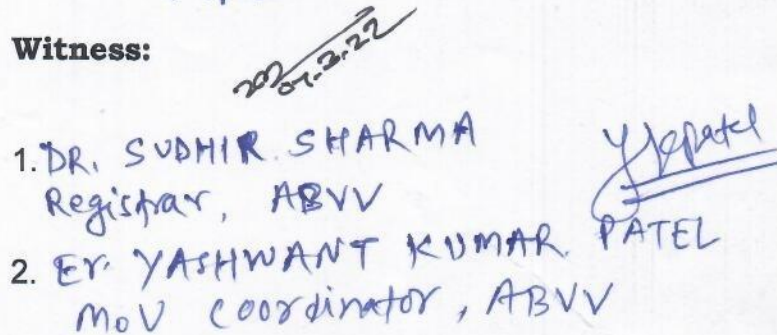 Witness:
07.3.22
1. DR. SUDHIR SHARMA
Registrar, ABVV
Ykpatel
2. Er. YASHWANT KUMAR PATEL
MoU Coordinator, ABVV